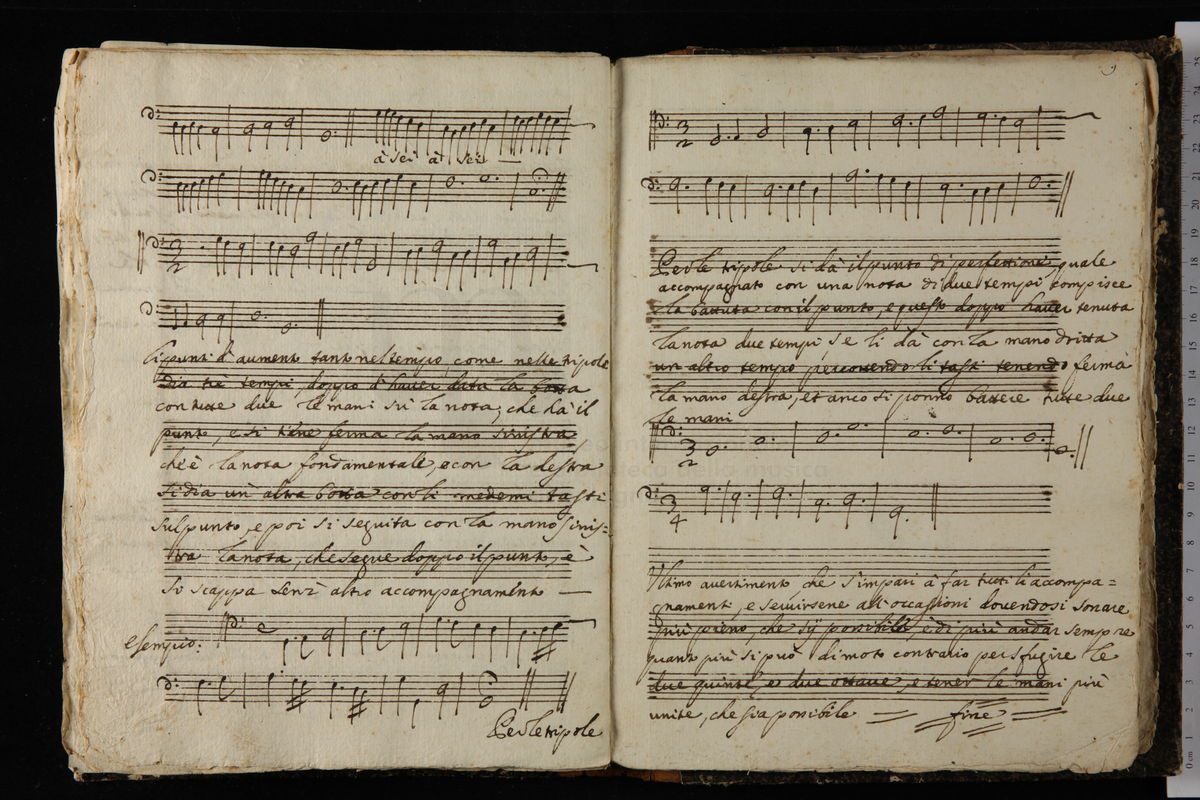 à sei à sei
3
2
Li punti d'aumento tanto nel tempio, come nelle tripole
dia trè tempi, doppo d'haver data la botta
con tutte due le mani sù la nota, che dà il
punto, e si tiene ferma la mano sinistra
ch'è la nota fondamentale, e con la destra
si dia un altra botta con li medemi tasti
sul punto, e poi si seguita con la mano sinis=
tra la nota, che segue doppo il punto, è
si scappa senz'altro accompagnamento
esempio:
Per le tripole
9
3
2
Per le tripole si dà il punto di perfettione, quale
accompagnato con una nota di due tempi compisce
la battuta con il punto, e questo doppo haver tenuta
la nota due tempi, se li dà con la mano dritta
un altro tempo percotendo li tasti tenendo ferma
la mano destra, et anco si ponno battere tutte due
le mani
3
2
3
4
Ultimo avertimento, che s'impari à far tutti li accompa=
gnamenti, e servirsene all'occasioni dovendosi sonare
più pieno, che sij possibile, è di più andar sempre
quanto più si può di moto contrario per sfugire le
due quinte, e due ottave, e tener le mani più
unite, che sia possibile = fine =